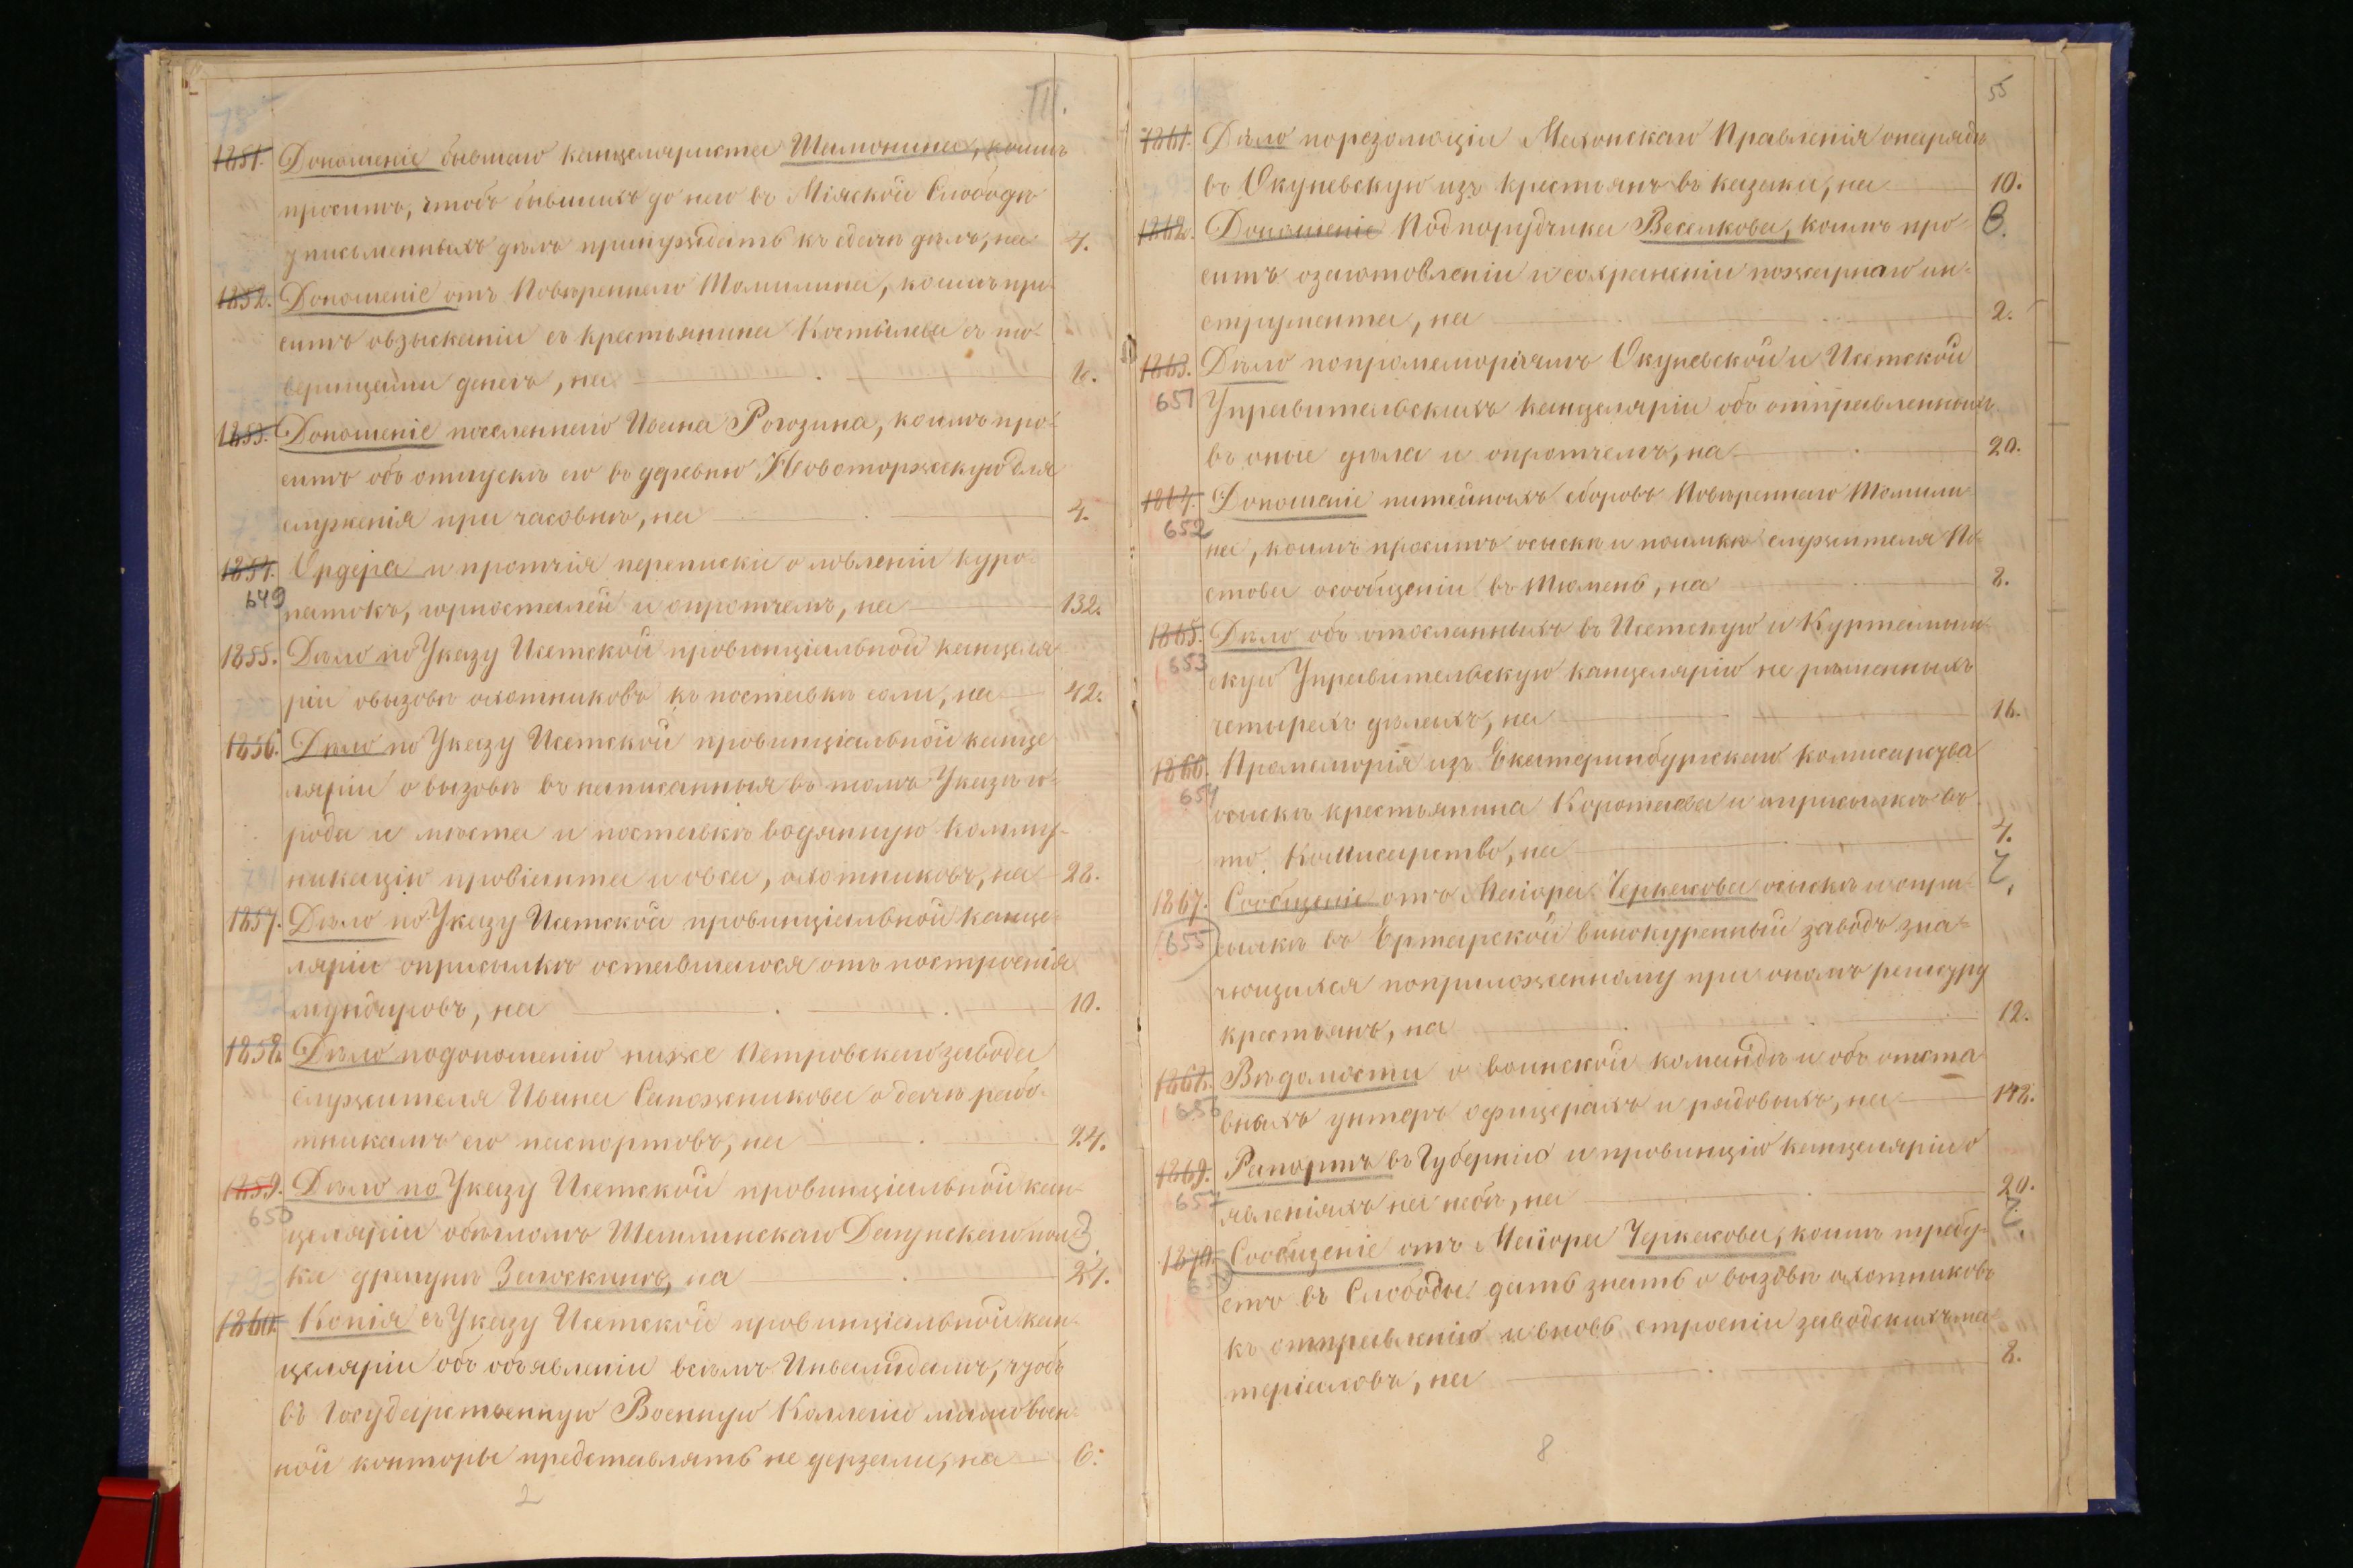 III.
1851. Доношеніе бывшаго канцеляриста Шамонина, коимъ
проситъ, чтобъ бывшихъ до него въ Міяской Слободѣ
у письменныхъ дѣлъ принуждать къ сдачѣ дѣлъ, на 4.
1852. Доношеніе отъ Повѣреннаго Томилина, коимъ про-
ситъ о взысканіи съ крестьянина Костылева съ то-
варищами денегъ, на 6.
1853. Доношеніе поселеннаго Ивана Рогозина, коимъ про-
ситъ объ отпускѣ его въ деревню Новоторжскую для
служенія при часовнѣ, на 4.
1854. Ордера и протчія переписки о ловленіи куро-
649 патокъ, горносталей и о протчемъ, на 132.
1855. Дѣло по Указу Исетской провинціальной канцеля
ріи о вызовѣ охотниковъ къ поставкѣ соли, на 42.
1856. Дѣло по Указу Исетской провинціальной канце
ляріи о вызовѣ въ написанныя въ томъ Указѣ го-
рода и мѣста и поставкѣ водянную комму-
никацію провіанта и овса, охотниковъ, на 22.
1857. Дѣло по Указу Исетской провинціальной канце-
ляріи о присылкѣ оставшагося отъ построенія
мундировъ, на 10.
1858. Дѣло по доношенію ниже Петровскаго завода
служителя Ивана Сапожникова о дачѣ рабо-
тникамъ его паспортовъ, на 24.
1859. Дѣло по Указу Исетской провинціальной кан-
650 целяріи о бѣгломъ Драгунскаго пол
ка драгунѣ на 24.
1860. Копія съ Указу Исетской провинціальной кан-
целяріи объ объявленіи всѣмъ Инвалидамъ, чтобъ
въ Государственную Военную Коллегію мимо воен-
ной конторы представлять не дерзали, на 6.
2
55
1861. Дѣло по резолюціи Мехонскаго Правленія о нарядѣ
въ Окуневскую изъ крестьянъ въ казаки, на 10.
1862. Доношеніе Подпорудчика Веселкова, коимъ про- В.
ситъ о заготовленіи и сохраненіи пожарнаго ин-
струмента, на 2.
1863. Дѣло по промеморіямъ Окуневской и Исетской
651 Управительскихъ канцеляріи объ отправленныхъ
въ оные дѣла и о протчемъ, на 20.
1864. Доношеніе питейныхъ сборовъ Повѣреннаго Томили
652 на, коимъ проситъ о сыскѣ и поимкѣ служителя По-
стова о сообщеніи въ Тюмень, на 8.
1865. Дѣло объ отосланныхъ въ Исетскую и Куртамыш
653 скую Управительскую канцелярію не рѣшенныхъ
четырехъ дѣлахъ, на 16.
1866. Промеморія изъ Екатеринбургскаго Комисарства
654 о сыскѣ крестьянина Коротаева и о присылкѣ въ
то Коммисарство, на 4.
1867. Сообщеніе отъ Маіора Черкасова о сыскѣ и о при- Ч.
655 сылкѣ въ Ертарской винокуренный заводъ зна-
чющихся по приложенному при ономъ реестру
крестьянъ, на 12.
1868. Вѣдомости о воинской командѣ и объ отста
656 вныхъ унтеръ офицерахъ и рядовыхъ, на 142.
1869. Рапортъ въ Губернію и провинцію канцелярію о
657 явленіяхъ на небѣ, на 20.
1870. Сообщеніе отъ Маіора Черкасова, коимъ требу- Ч.
етъ въ Слободы дать знать о вызовѣ охотниковъ
къ отправленію и вновь строеніи заводскихъ ма-
теріаловъ, на 8.
8